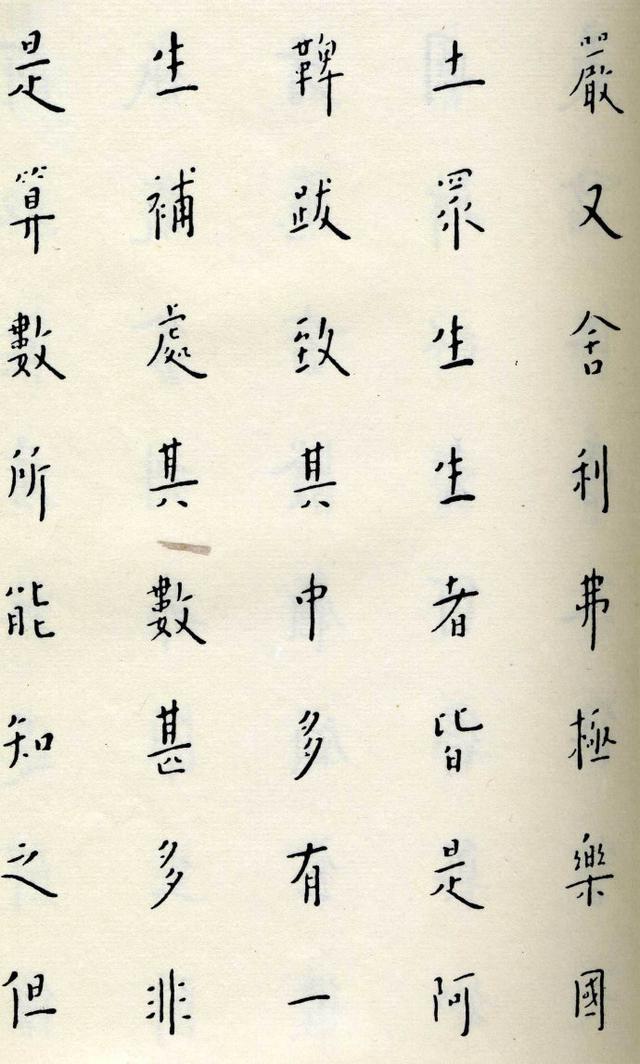 嚴又舍利弗極樂國
土眾生生者皆是阿
鞞跋致其中多有一
生補處其數甚多非
是算數所能知之但